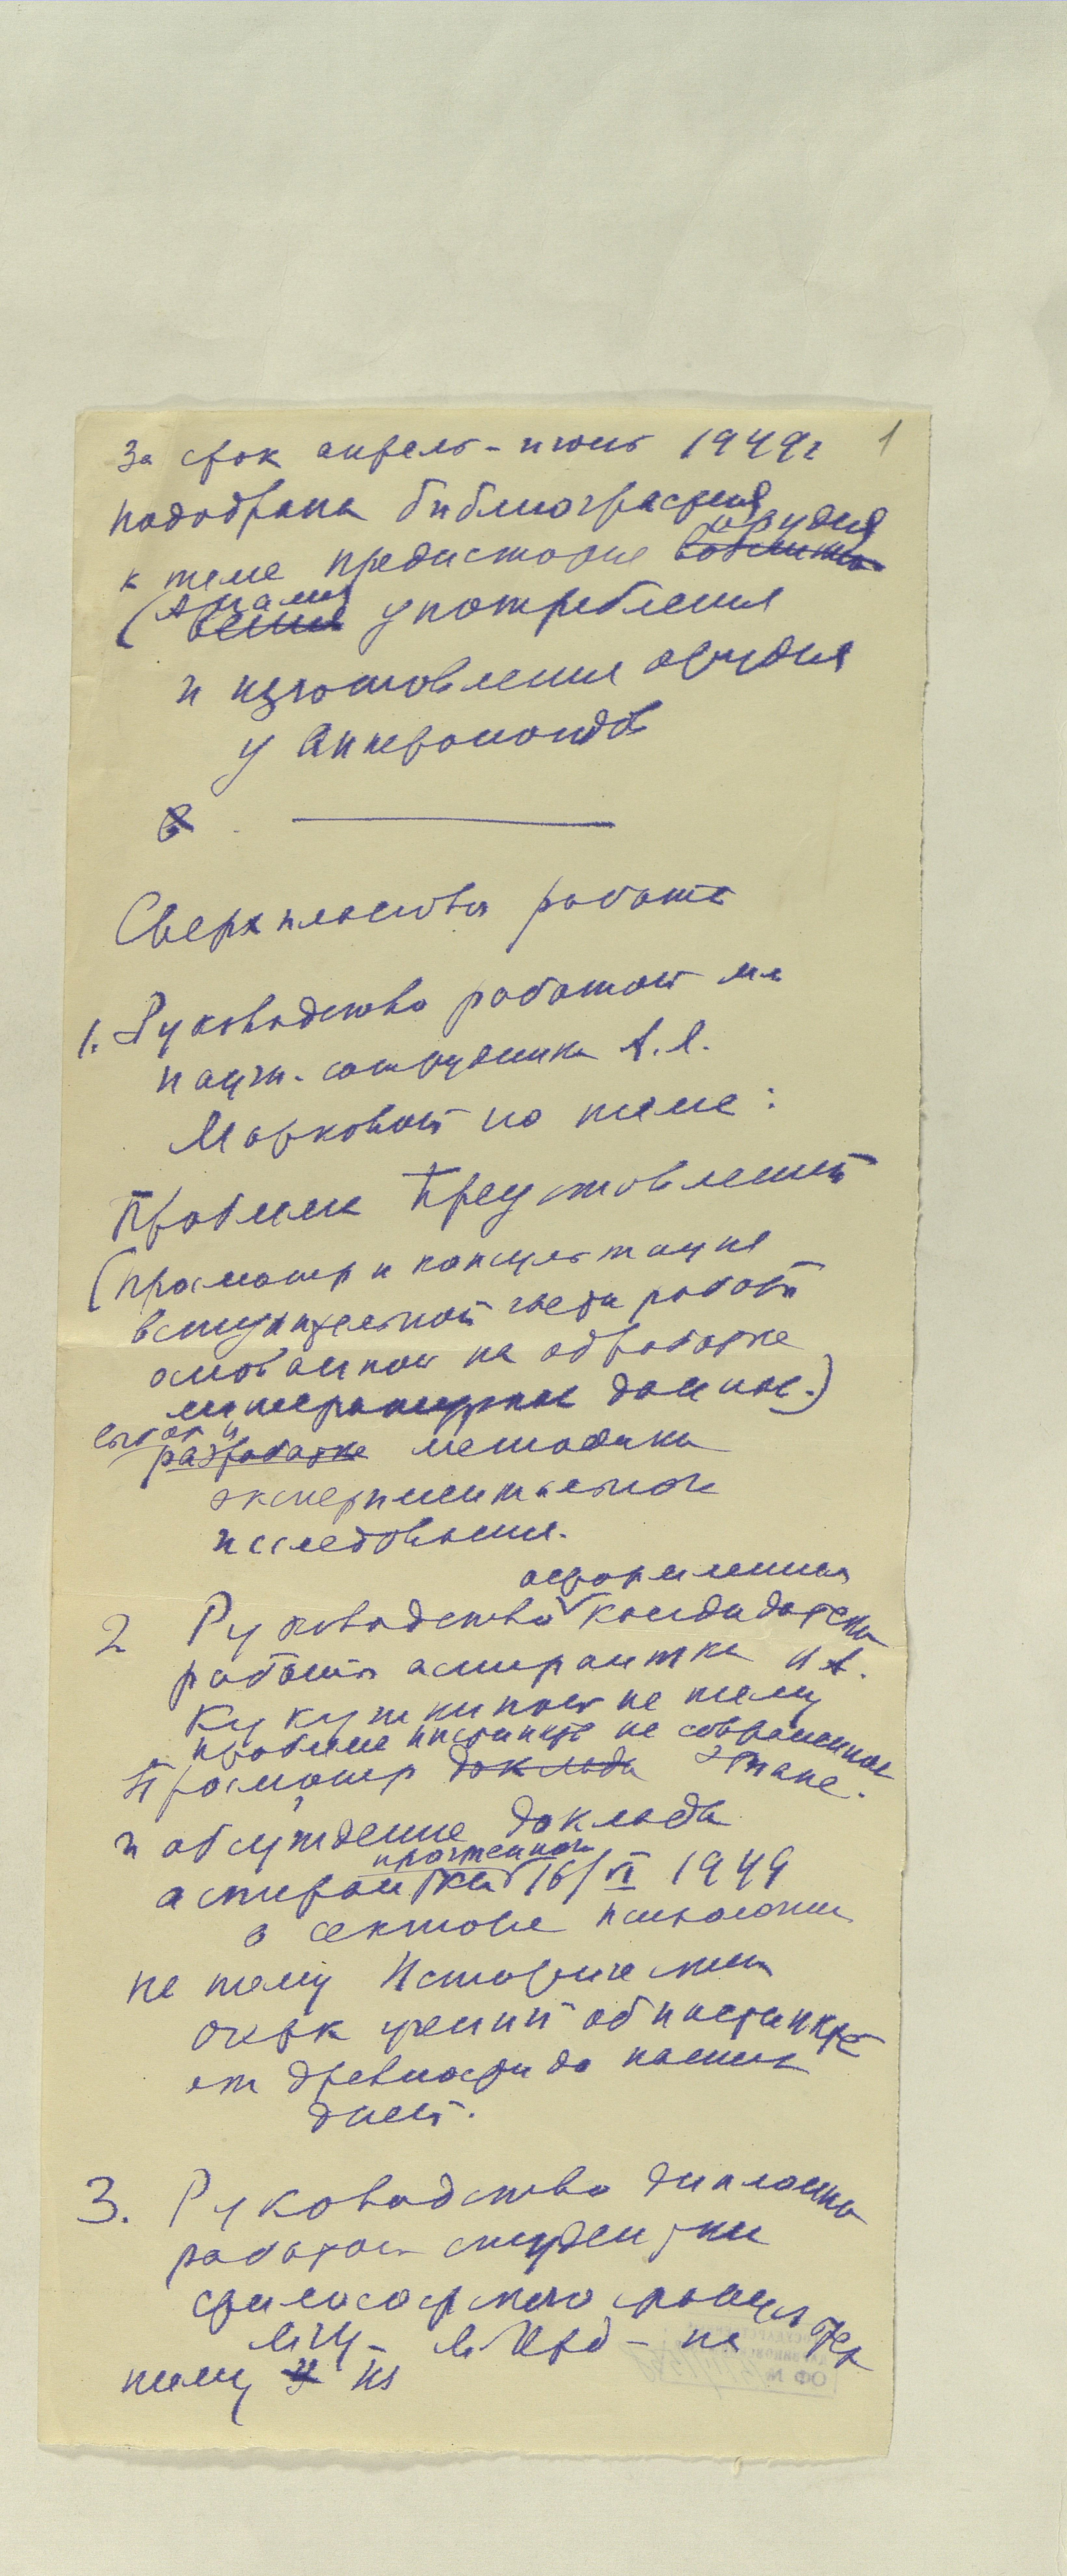 За срок апрель-июнь 1949г 1
подобрана библиография
орудия
к теме предистория
(Анализ употребления
и изготовления орудия
у Антропоидов
Сверхплановая работа
1. Руководство работой мл
научн. сотрудника А.Я.
Марковой по теме:
Проблема Представлений
(просмотр и консультация
вступительной части работы
основанной на обработке
литературных данных.)
выбор и
разработке методики
экспериментального
исследования.
оформлением
2 Руководство кандидатской
работы аспирантки И А.
Кукушкиной на тему
проблема инстинкта на современном
Просмотр доклада этапе.
и обсуждение доклада
прочтенного
аспиранткой 16/VI 1949
в секторе психологии
на тему Исторический
очерк учений об инстинкте
от древности до наших
дней.
3. Руководство дипломной
работой студентки
философского факультета
МГУ – – на
тему из
ОФ №